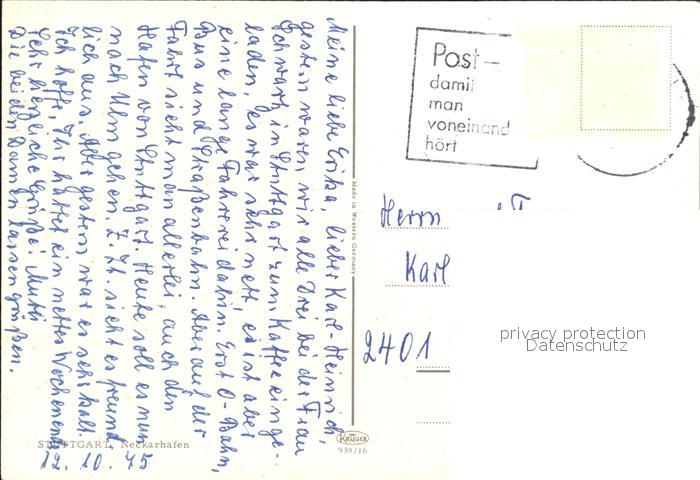 Meine liebe Erika, lieber Karl-Heinrich,
gestern waren wir alle drei bei der Frau
in Stuttgart zum Kaffee einge-
laden, es war sehr nett, es ist aber
eine lange Fahrerei dahin. Erst O-Bahn,
Bus und Straßenbahn. Aber auf der
Fahrt sieht man allerlei, auch den
Hafen von Stuttgart. Heute soll es nun
nach Ulm gehen. Z. Zt. sieht es freund
lich aus. Aber gestern war es sehr kalt.
Ich hoffe, Ihr hattet ein nettes Wochenend
Sehr herzliche Grüße! Mutti
Die beiden Damen lassen grüßen.
STUTTGART, Neckarhafen
12. 10. 75
Made in Western Germany
KRÜGER
939/16
Post-
damit
man
voneinand
hört
Herrn
Karl
2401
privacy protection
Datenschutz